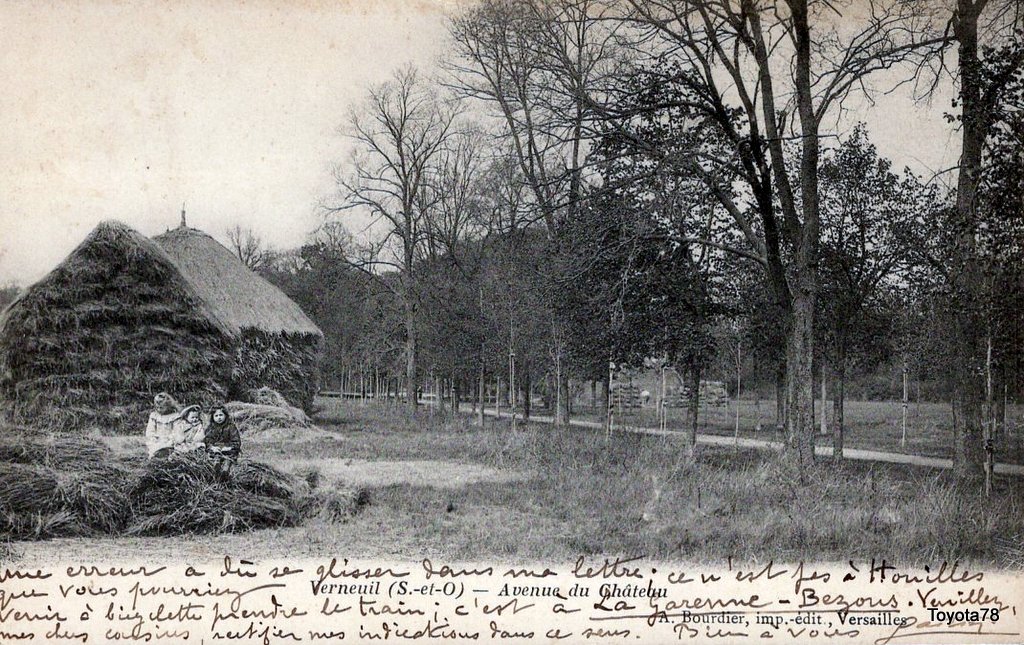 une erreur a dû se glisser dans ma lettre : ce n'est pas à Houilles
Verneuil (S.-et-O) – Avenue du Château
que vous pourriez
venir à bicyclette prendre le train ; c'est à La Garenne - Bezons. Veuillez,
A. Bourdier, imp.-édit., Versailles
Toyota78
mes chers cousins, rectifier mes indications dans ce sens. Bien à vous